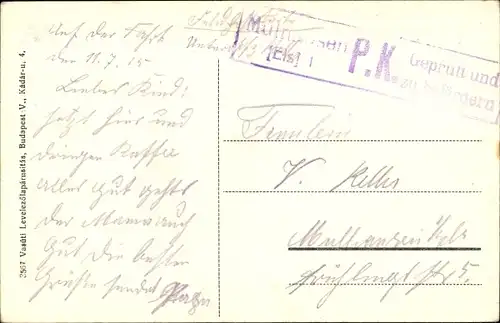 Auf der Fahrt
den 11.7.15
Liebes Kind!
jetzt hier und
Kaffee
alles gut gehts
der Mama auch
Gut die besten
Grüße sendet Papa
Mülhausen
[Els] 1
P.K.
Geprüft und
zu befördern
Fräulein
V. Keller
Mülhausen Els
Frühlingstr 5.
2567 Vasúti Levelezőlapárusítás, Budapest V., Kádár-u. 4.